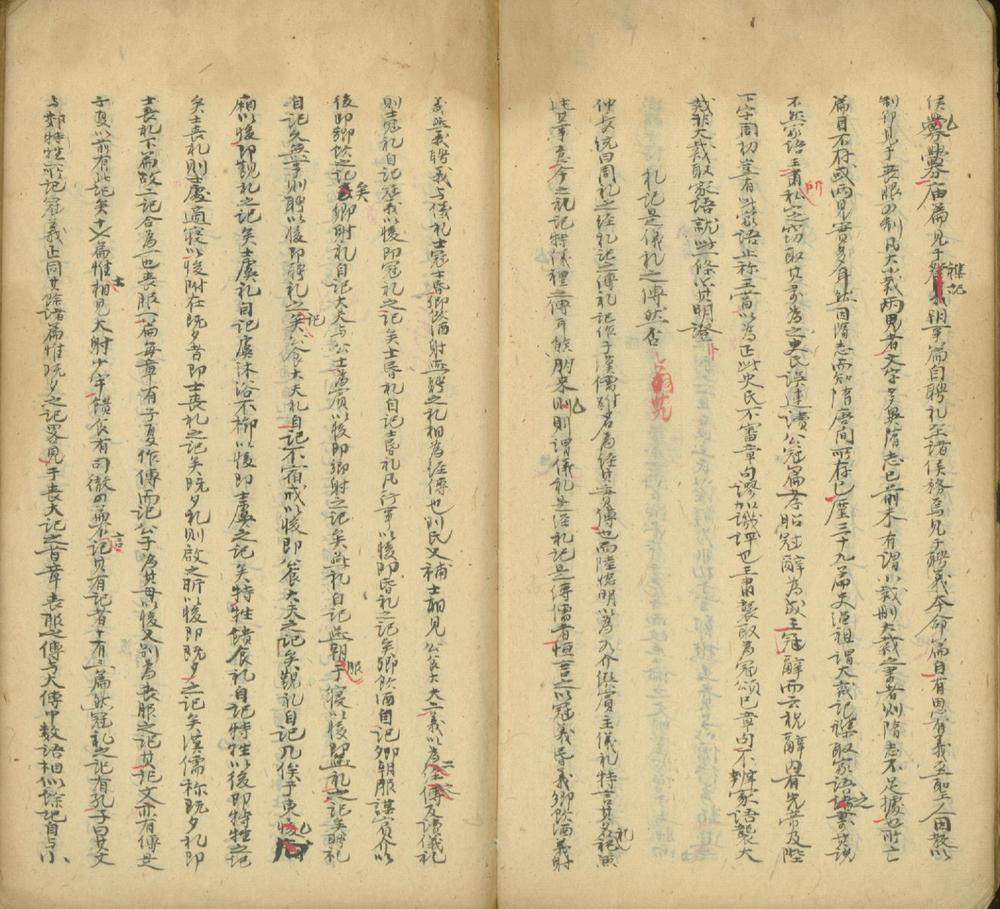 侯釁廟篇見于雜記朝事篇自聘礼至諸侯務焉見于聘義本命篇自有恩有義至聖人因教以
制節見于喪服四制凡大小戴兩見者文字多異隋志已前未有謂小戴刪大戴之書者則隋志不足據也所亡
篇目不存或兩見實多有然因隋志而知隋唐間所存已廑三十九篇史繩祖謂大戴記襍取家語之書其說
不然家語王肅私定所竊取其書為之史氏誤連讀公冠篇孝昭冠辭為成王冠辭而云祝辭內有先帝及陛
下字周初豈有此家語止稱王當以為正此史氏不審章句謬加譏評也王肅襲取為冠頌已章句不辨家語襲大
戴非大戴取家語就此一條尤其明證
礼記是儀礼之傳然否
仲長統曰周礼之經礼記之傳礼記作于漢儒雖名為經其實傳也而陸德明以為介儐賓主儀礼特言其名礼記兼
述其事意今之礼記特儀禮之傳耳熊朋來則謂儀礼是經礼記是傳儒者恒言之以冠義昏義鄉飲酒義射
義燕義聘義与儀礼士冠士昏鄉飲酒射燕聘之礼相為經傳也刘氏又補士相見公食大夫二義以為二經之傳及讀儀礼
則士冠礼自記冠義以後即冠礼之記矣士昏礼自記士昏礼凡行事以後即昏礼之記矣鄉飲酒自記鄉朝服謀賓介以
後即鄉飲之記矣鄉射礼自記大夫与公士為賓以後即鄉射之記矣燕礼自記燕朝服于寢以後即燕礼之記矣聘礼
自記久無事則聘以後即聘礼之記矣公食大夫礼自記不宿戒以後即公食大夫之記矣覲礼自記几俟于東
廂以後即覲礼之記矣士虞礼自記虞沐浴不櫛以後即士虞之記矣特牲饋食礼自記特牲以後即特牲之記
矣士喪礼則士處適寢以後附在既夕者即士喪礼之記矣既夕礼則啟之昕以後即既夕之記矣漢儒称既夕礼即
士喪礼下篇故二記合為一也喪服一篇每章有子夏作傳而記公子為其母以後又別為喪服之記其非文亦有傳是
子夏以前有此記矣十七篇惟士相見大射少牢饋食有司徹四篇不言記其有記者十有三篇然冠礼之記有孔子曰其文
与郊特牲所記冠義正同其餘諸篇惟既夕之記畧見于喪大記之首章喪服之傳与大傳中數語相似餘記自与小